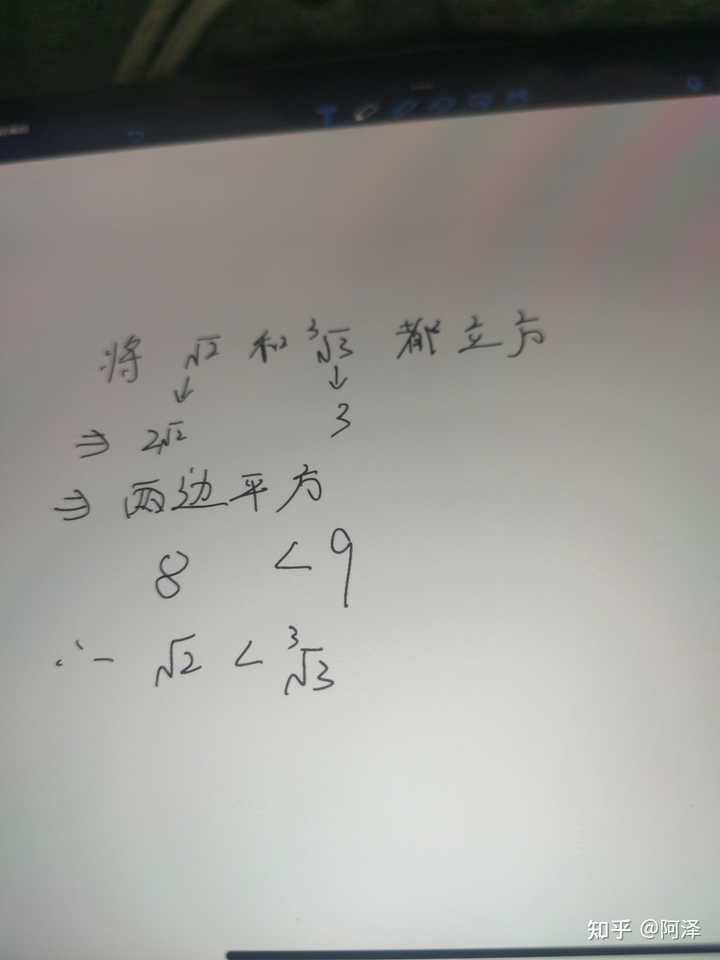 将 √2 和 ³√3 都立方
↓ ↓
⇒ 2√2 3
⇒ 两边平方
8 < 9
∴ √2 < ³√3
知乎 @阿泽